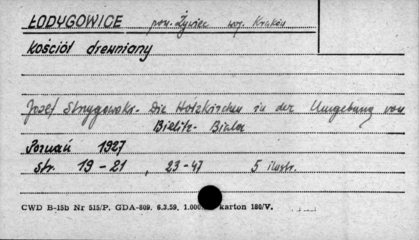 ŁODYGOWICE pow. Żywiec woj. Kraków
kościół drewniany
Josef Strzygowski - Die Holzkirchen in der Umgebung von
Bielitz - Biala
Poznań 1927
str. 19-21, 23-47 5 ilustr.
CWD B-15b Nr 515/P. GDA-809. 6.3.59. 1.000 karton 180/V.